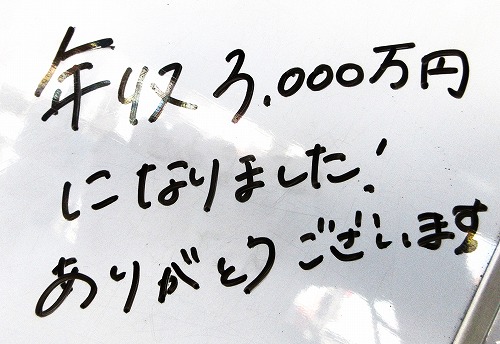 年収3.000万円
になりました!
ありがとうございます